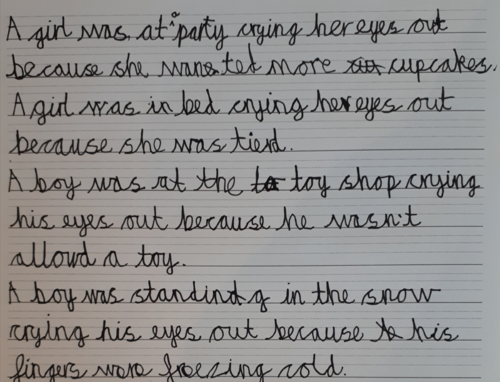 A girl was at a party crying her eyes out
because she wanted more cupcakes.
A girl was in bed crying her eyes out
because she was tierd.
A boy was at the toy shop crying
his eyes out because he wasn't
allowd a toy.
A boy was standing in the snow
crying his eyes out because his
fingers were freezing cold.